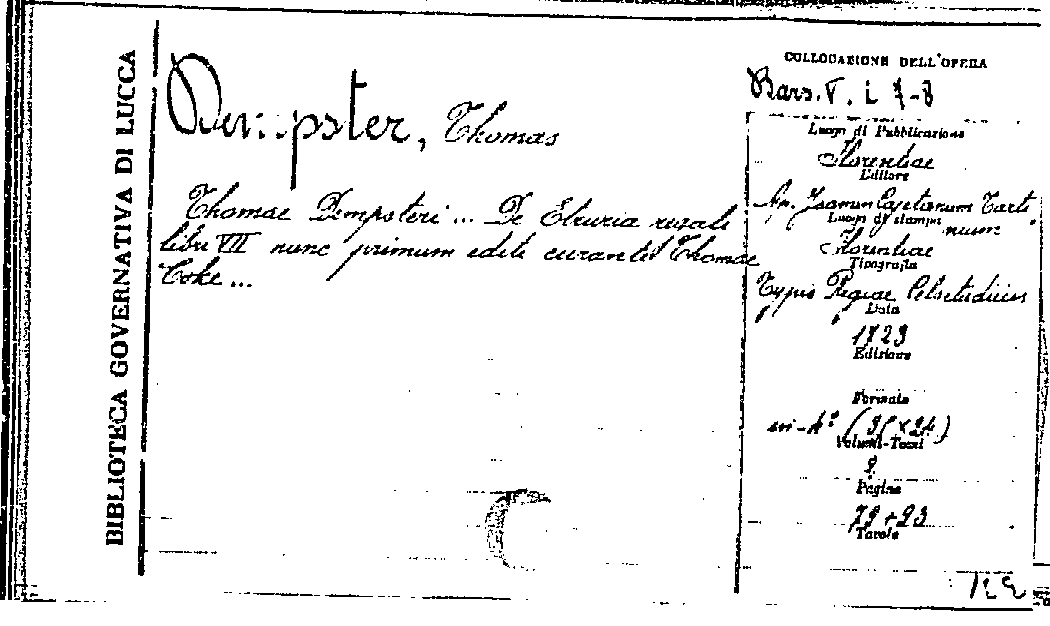 BIBLIOTECA GOVERNATIVA DI LUCCA
Dempster, Thomas
Thomae Dempsteri ... De Etruria regali
libri VII nunc primum editi curante Thoma
Coke ...
COLLOCAZIONE DELL'OPERA
Bars. V. i 7-8
Luogo di Pubblicazione
Florentiae
Editore
Ap. Joannem Cajetanum Tarti
nium
Luogo di stampa
Florentiae
Tipografia
Typis Regiae Celsitudinis
Data
1723
Edizione
Formato
in-4°
Volumi-Tomi
2
Pagine
Tavole